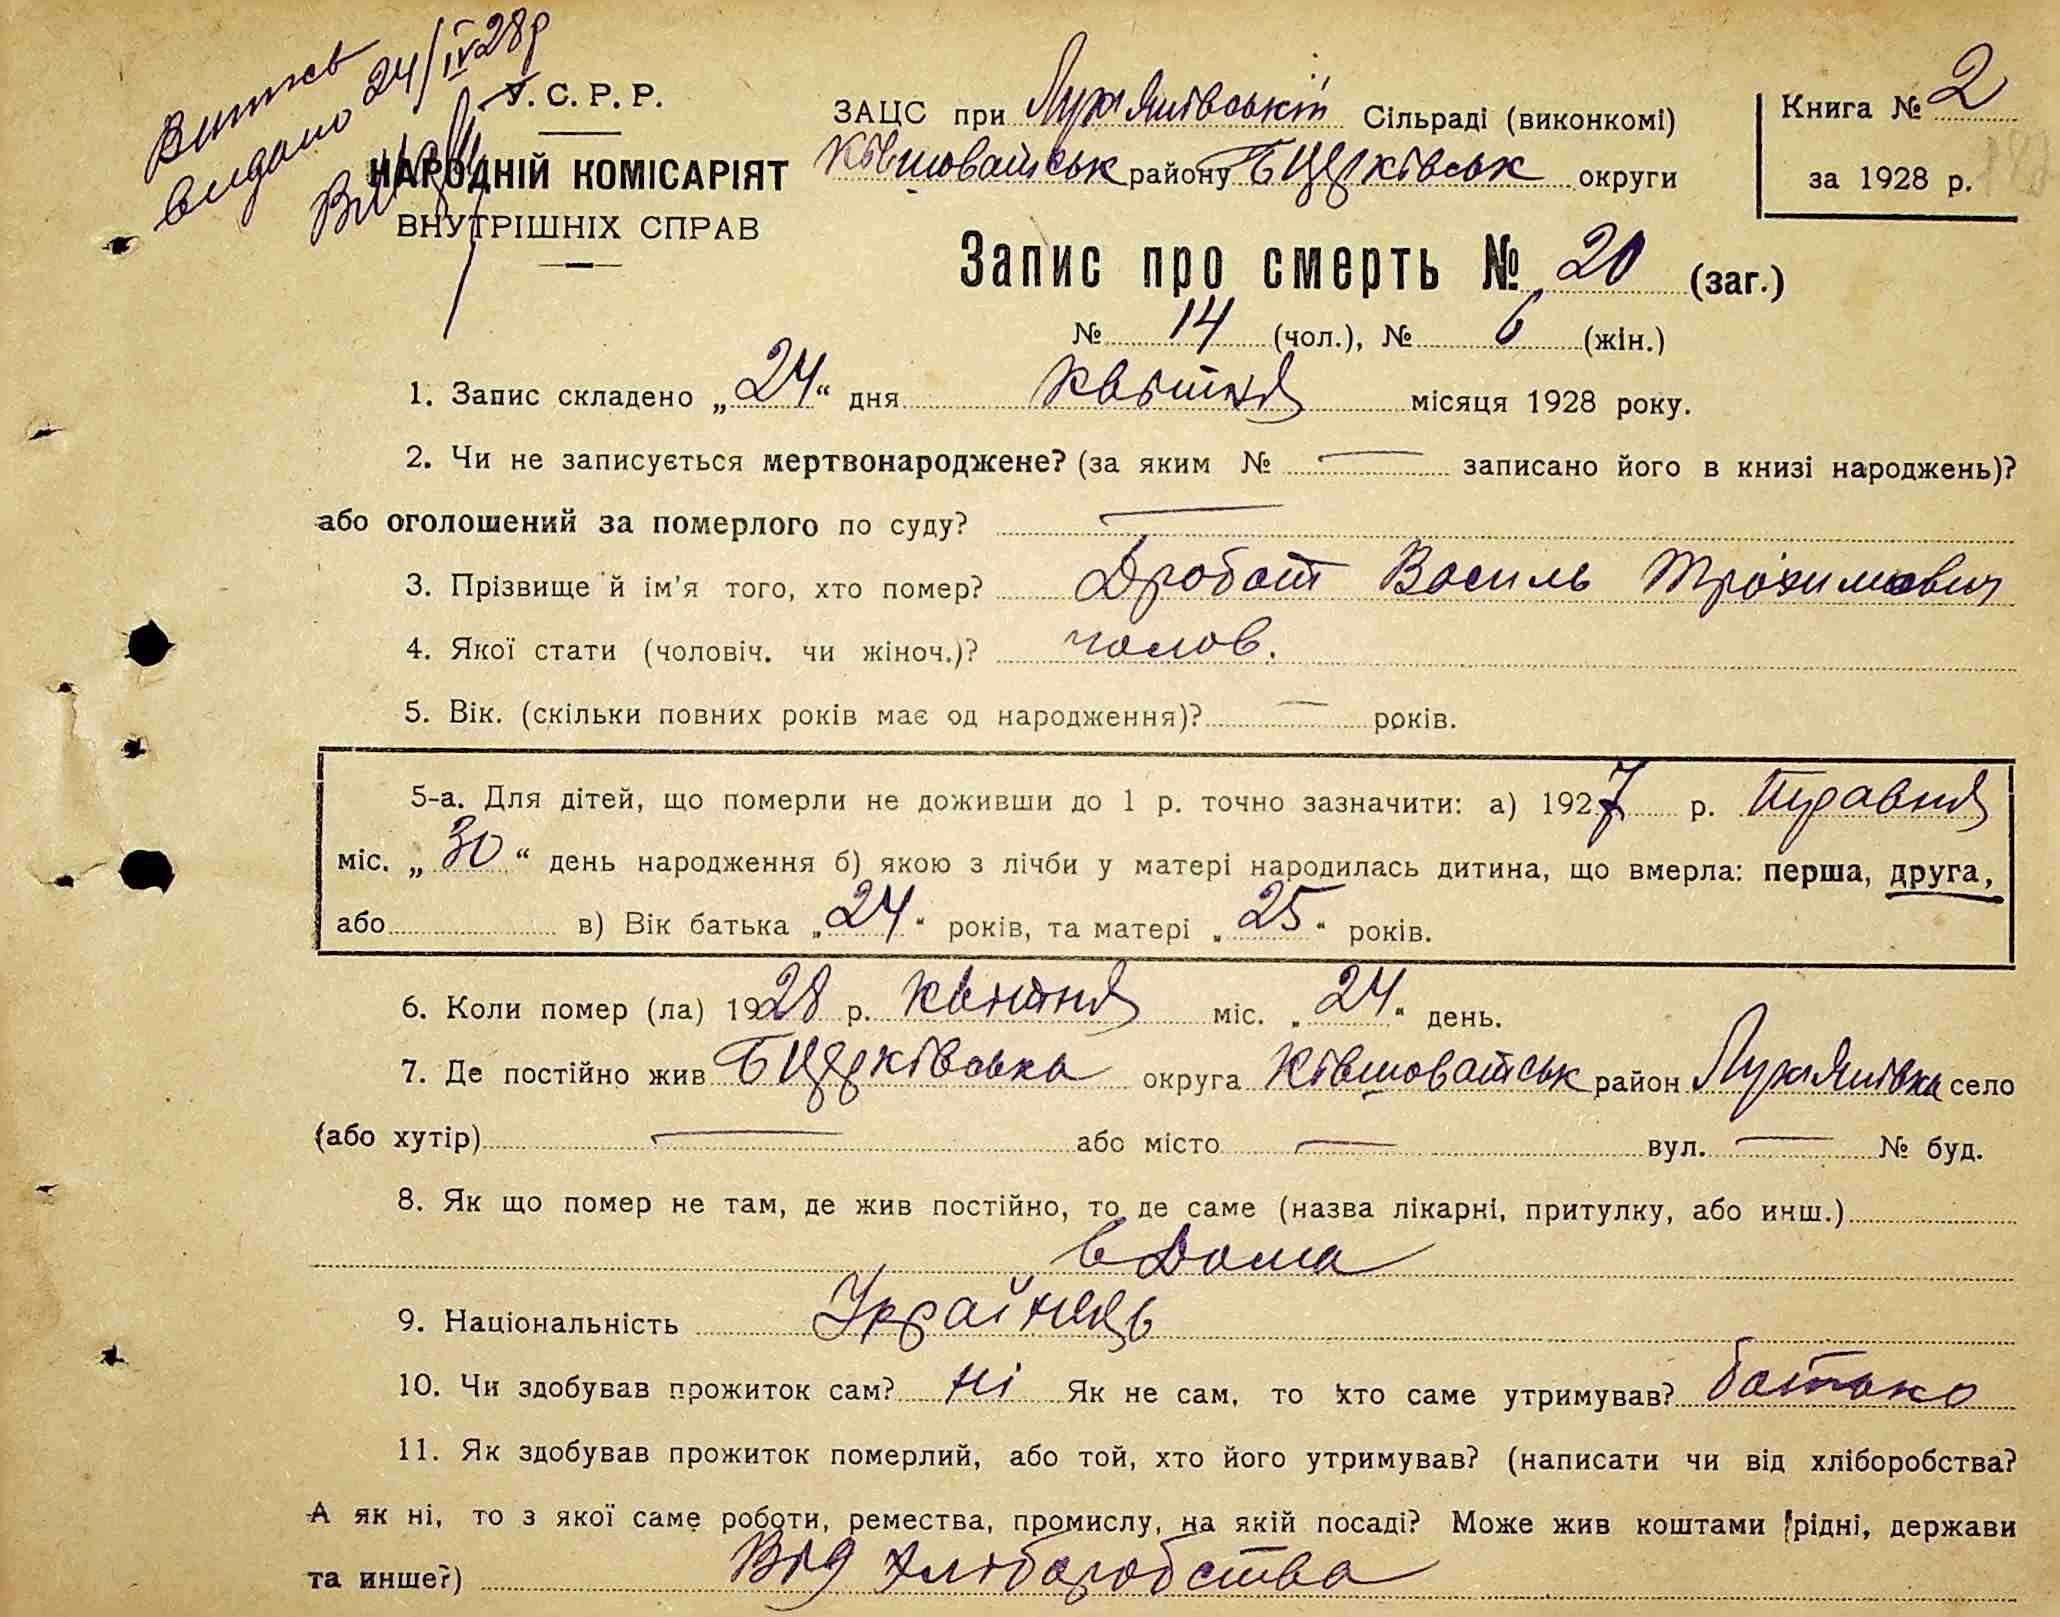 Витяг
видано 24/IV 28р
У. С. Р. Р.
НАРОДНІЙ КОМІСАРІЯТ
ВНУТРІШНІХ СПРАВ
ЗАЦС при Лукянівській Сільраді (виконкомі)
Ківшоватськ району БЦерківськ округи
Книга № 2
за 1928 р.
Запис про смерть № 20 (заг.)
№ 14 (чол.), № 6 (жін.)
1. Запис складено „24“ дня квітня місяця 1928 року.
2. Чи не записується мертвонароджене? (за яким № — записано його в книзі народжень)?
або оголошений за померлого по суду? —
3. Прізвище й ім'я того, хто помер? Дробот Василь Трохимович
4. Якої стати (чоловіч. чи жіноч.)? чолов.
5. Вік. (скільки повних років має од народження)? — років.
5-а. Для дітей, що померли не доживши до 1 р. точно зазначити: а) 1927 р. Травня
міс. „30“ день народження б) якою з лічби у матері народилась дитина, що вмерла: перша, друга,
або в) Вік батька „24“ років, та матері „25“ років.
6. Коли помер (ла) 1928 р. квітня міс. „24“ день.
7. Де постійно жив БЦерківська округа Ківшоватськ район Лукянівка село
(або хутір) — або місто — вул. — № буд.
8. Як що помер не там, де жив постійно, то де саме (назва лікарні, притулку, або инш.)
вдома
9. Національність Українець
10. Чи здобував прожиток сам? ні Як не сам, то хто саме утримував? батько
11. Як здобував прожиток померлий, або той, хто його утримував? (написати чи від хліборобства?
А як ні, то з якої саме роботи, ремества, промислу, на якій посаді? Може жив коштами рідні, держави
та инше?) Від хліборобства